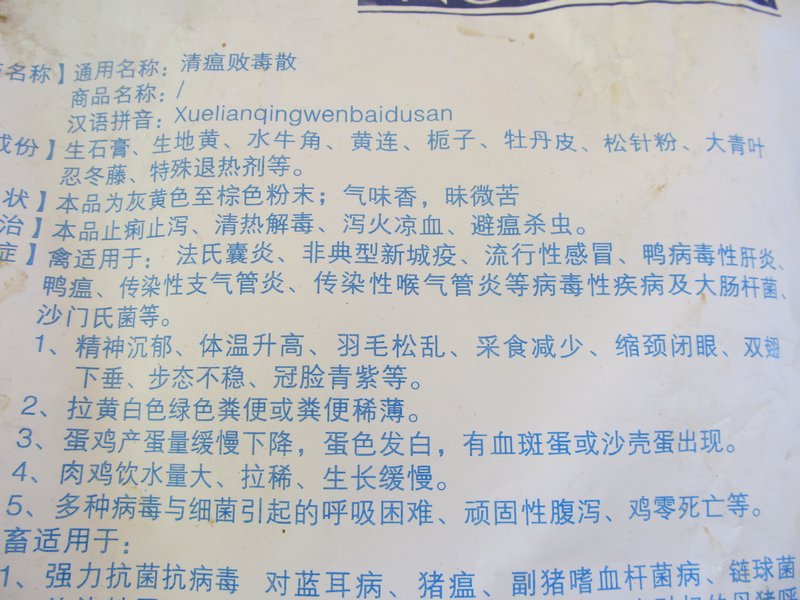 名称】通用名称：清瘟败毒散
商品名称：/
汉语拼音：Xuelianqingwenbaidusan
成份】生石膏、生地黄、水牛角、黄连、栀子、牡丹皮、松针粉、大青叶
忍冬藤、特殊退热剂等。
状】本品为灰黄色至棕色粉末；气味香，味微苦
治】本品止痢止泻、清热解毒、泻火凉血、避瘟杀虫。
症】禽适用于：法氏囊炎、非典型新城疫、流行性感冒、鸭病毒性肝炎、
鸭瘟、传染性支气管炎、传染性喉气管炎等病毒性疾病及大肠杆菌、
沙门氏菌等。
1、精神沉郁、体温升高、羽毛松乱、采食减少、缩颈闭眼、双翅
下垂、步态不稳、冠脸青紫等。
2、拉黄白色绿色粪便或粪便稀薄。
3、蛋鸡产蛋量缓慢下降，蛋色发白，有血斑蛋或沙壳蛋出现。
4、肉鸡饮水量大、拉稀、生长缓慢。
5、多种病毒与细菌引起的呼吸困难、顽固性腹泻、鸡零死亡等。
畜适用于：
1、强力抗菌抗病毒 对蓝耳病、猪瘟、副猪嗜血杆菌病、链球菌